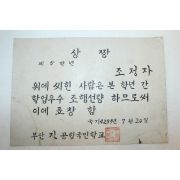 상장
제 5 학년
조정자
위에 씨힌 사람은 본 학년 간
학업우수 조행선량 하므로써
이에 표창 함
국기4289년 7월 20일
부산 공립국민학교